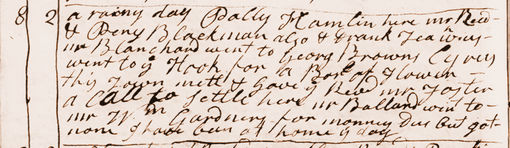 8 2 a rainy day Dally Hamlin here mr Reed
& Peny Blackman also & Frank Teawrs
mr Blanchard went to Georg Browns Cyrus
went to ye Hook for a Bar of Flower
this Town mett & Gave ye Revd mr Foster
a Call to settle here mr Ballard went to
mr Wm Gardners for monney Due but got
none I have been at home ye day